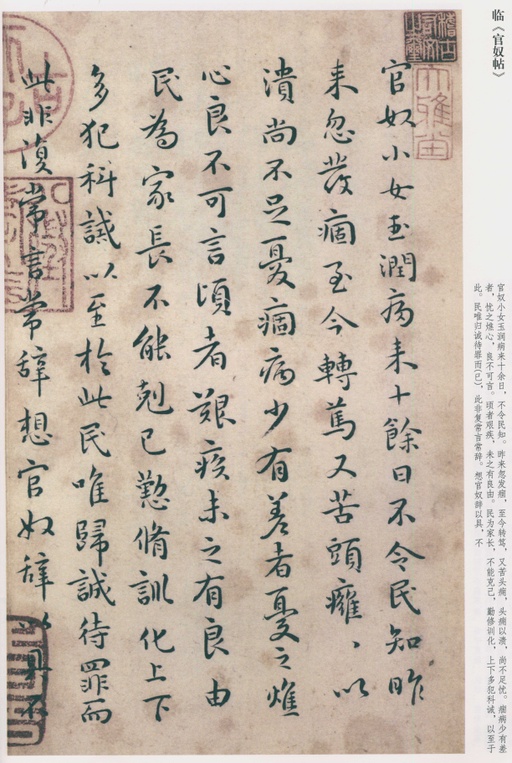 临《官奴帖》
官奴小女玉潤病来十餘日不令民知昨
来忽發痼至今轉篤又苦頭癰、以
潰尚不足憂痼病少有差者憂之燋
心良不可言頃者艱疾未之有良由
民為家長不能剋己懃脩訓化上下
多犯科誡以至於此民唯歸誠待罪而
此非復常言常辞想官奴辞以具不
官奴小女玉润病来十余日，不令民知。昨来忽发痼，至今转笃，又苦头痈，头痈以溃，尚不足忧。痼病少有差
者，忧之燋心，良不可言。顷者艰疾，未之有良由。民为家长，不能克己，勤修训化，上下多犯科诫，以至于
此。民唯归诚待罪而(已)，此非复常言常辞。想官奴辞以具，不